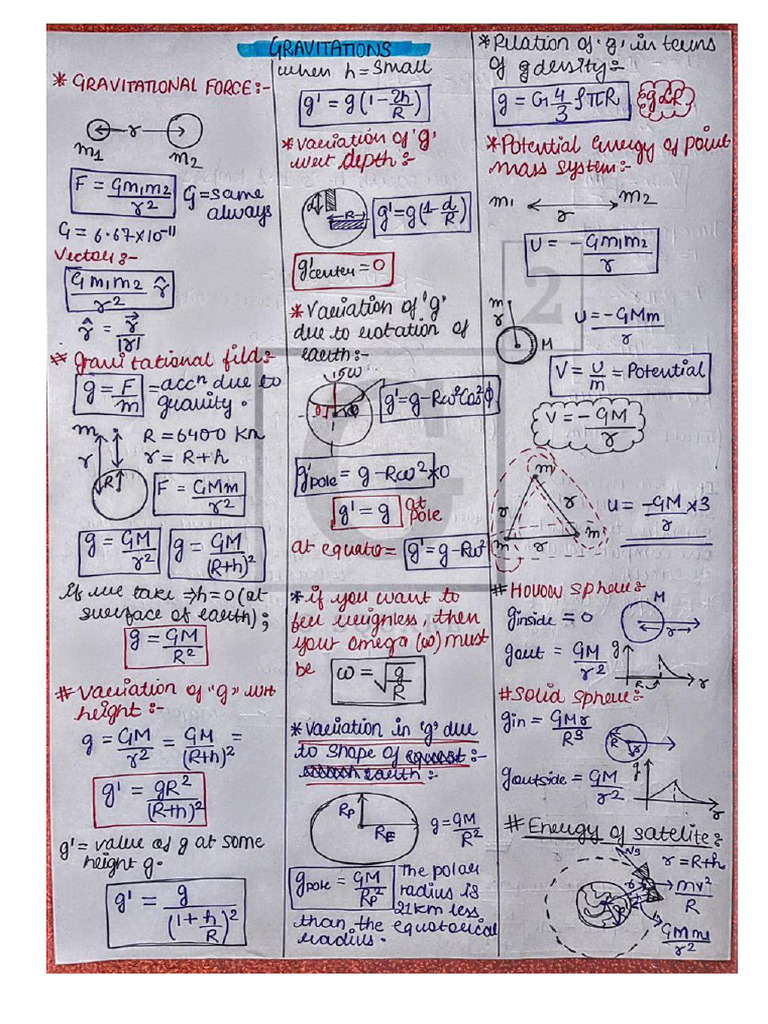 GRAVITATIONS
* GRAVITATIONAL FORCE:-
r
m1 m2
F = Gm1m2/r² G = same always
G = 6.67×10⁻¹¹
Vector:-
Gm1m2/r² r̂
r̂ = r⃗/|r|
* Gravitational fild:-
g = F/m = accⁿ due to
gravity.
m
r
R
R = 6400 Km
r = R+h
F = GMm/r²
g = GM/r² g = GM/(R+h)²
If we take ⇒ h = 0 (at
surface of earth);
g = GM/R²
# Variation of "g" wrt
height:-
g = GM/r² = GM/(R+h)² =
g' = gR²/(R+h)²
g' = value of g at some
height g.
g' = g/(1+h/R)²
when h = small
g' = g(1-2h/R)
* Variation of 'g'
wert depth:-
d
R
g' = g(1-d/R)
g'center = 0
* Variation of 'g'
due to rotation of
earth:-
g' = g-Rω²Cos²ϕ
g'pole = g-Rω²*0
g' = g at pole
at equator = g' = g-Rω²
* if you want to
feel weighless then
your omega (ω) must
be ω = √g/R
* Variation in 'g' due
to shape of
earth:-
RP
RE
g = GM/R²
gpole = GM/RP² The polar
radius is
21km less
than the equatorical
radius.
* Rilation of 'g' in terms
of g density:-
g = G 4/3 ρπR g∝R
* Potential energy of point
mass system:-
m1 m2
r
U = -Gm1m2/r
m
r
M
U = -GMm/r
V = U/m = Potential
V = -GM/r
m
r r
m r m
U = -GM/r ×3
# Hollow sphere:-
M
ginside = 0
r
gout = GM/r²
g
R r
# Solid sphere:-
gin = GMr/R³
R
r
goutside = GM/r²
g
r
# Energy of satelite:-
r = R+h
mv²/R
GMm/r²